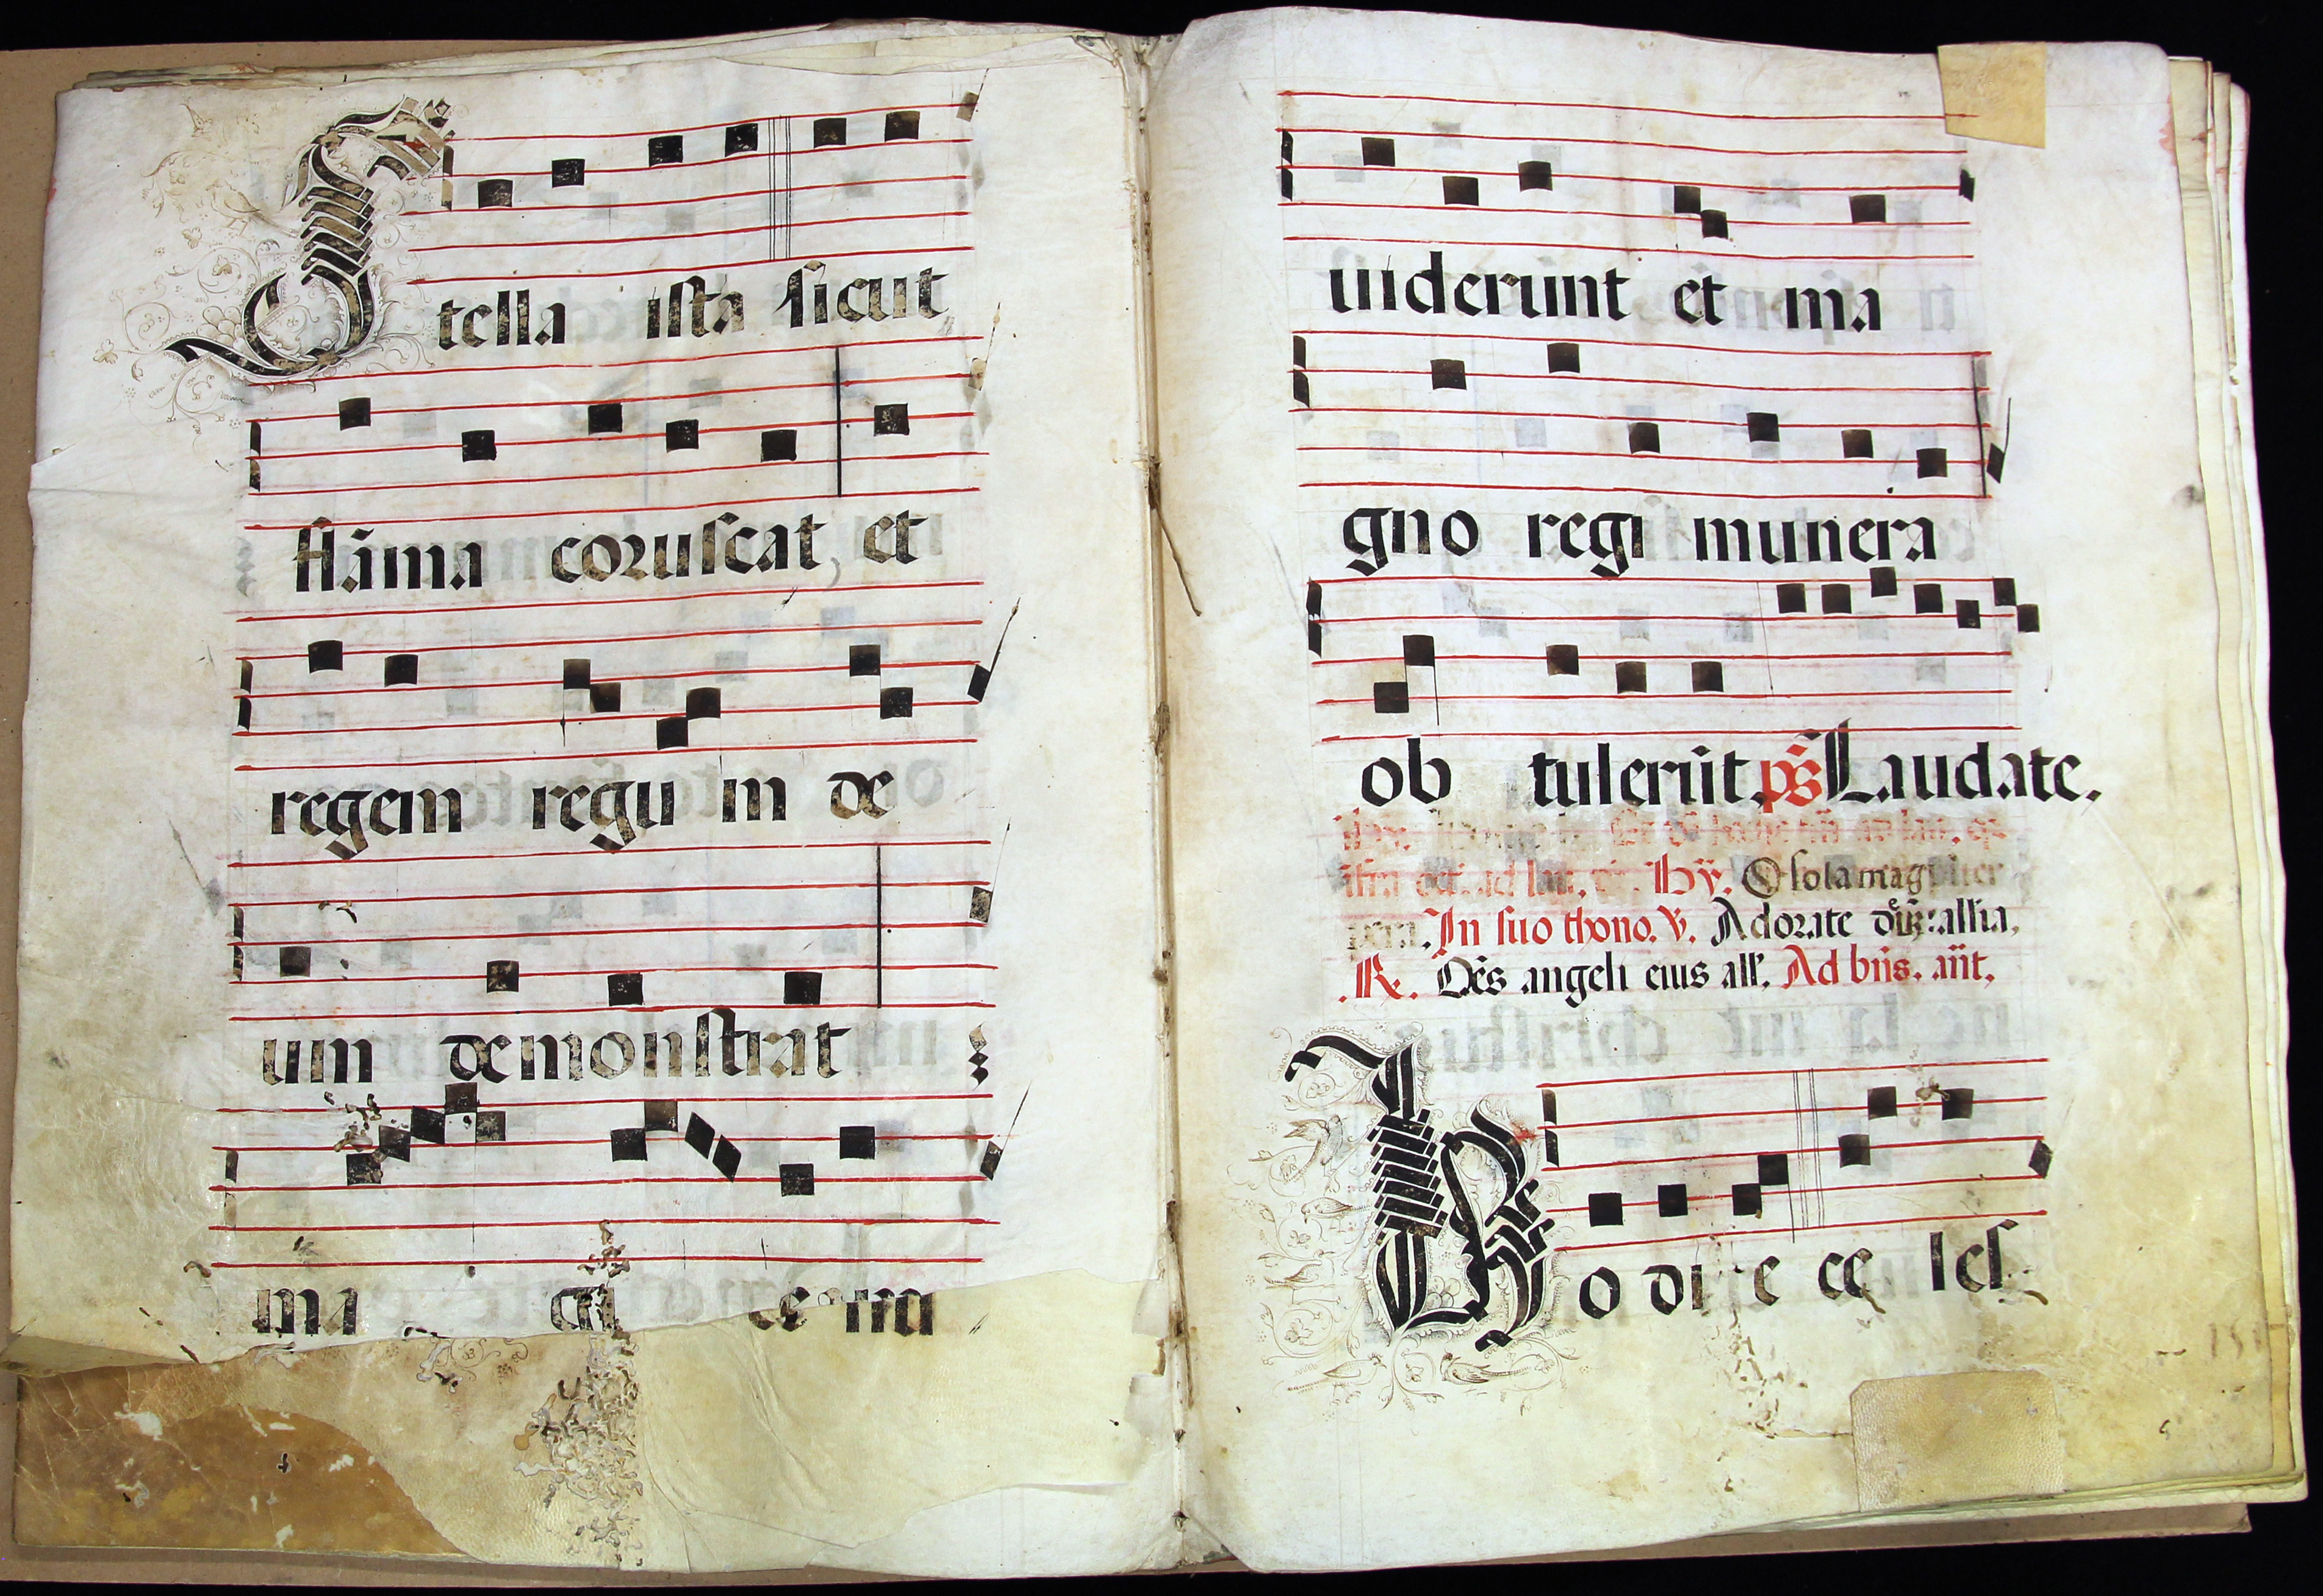 Stella ista sicut
flāma coruscat, et
regem regū in de
um demonstrat
ma
uiderunt et ma
gno regi munera
ob tulerūt. ps̄ Laudate.
Hȳ. O sola mag
In suo thono. v. Adorate deū: allia.
R. Oēs angeli eius all'. Ad bn̄s. an̄t.
Hodie ce lesti